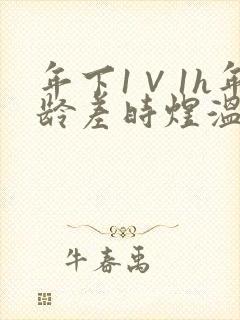 年下1V1h年
龄差时煜温
牛春禹